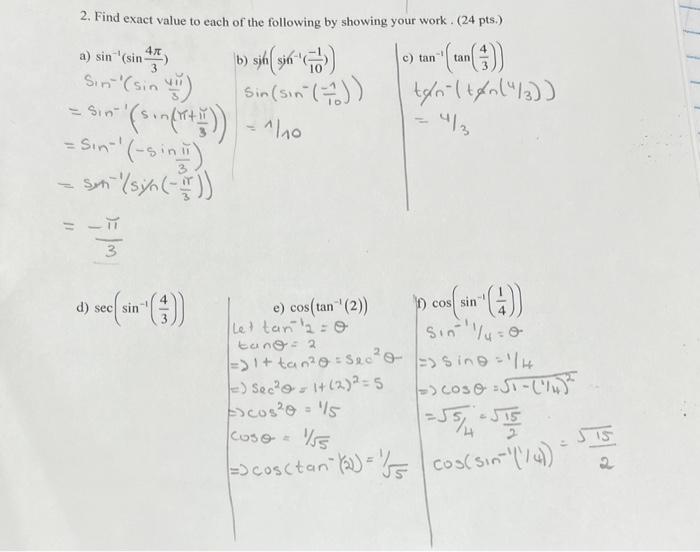 2. Find exact value to each of the following by showing your work . (24 pts.)
a) sin⁻¹(sin 4π/3)
Sin⁻¹(sin 4π/3)
= Sin⁻¹(sin(π+π/3))
= Sin⁻¹(-sin π/3)
= sin⁻¹(sin(-π/3))
= -π/3
b) sin(sin⁻¹(-1/10))
Sin(sin⁻(-1/10))
= 1/10
c) tan⁻¹(tan(4/3))
tan⁻(tan(4/3))
= 4/3
d) sec(sin⁻¹(4/3))
e) cos(tan⁻¹(2))
Let tan⁻¹2 = θ
tanθ = 2
=> 1 + tan²θ = Sec²θ
=> Sec²θ = 1+(2)² = 5
=> cos²θ = 1/5
Cosθ = 1/√5
=> cos(tan⁻¹(2)) = 1/√5
f) cos(sin⁻¹(1/4))
Sin⁻¹1/4 = θ
=> Sinθ = 1/4
=> cosθ = √1-(1/4)²
= √5/4 = √15/2
cos(sin⁻¹(1/4)) = √15/2